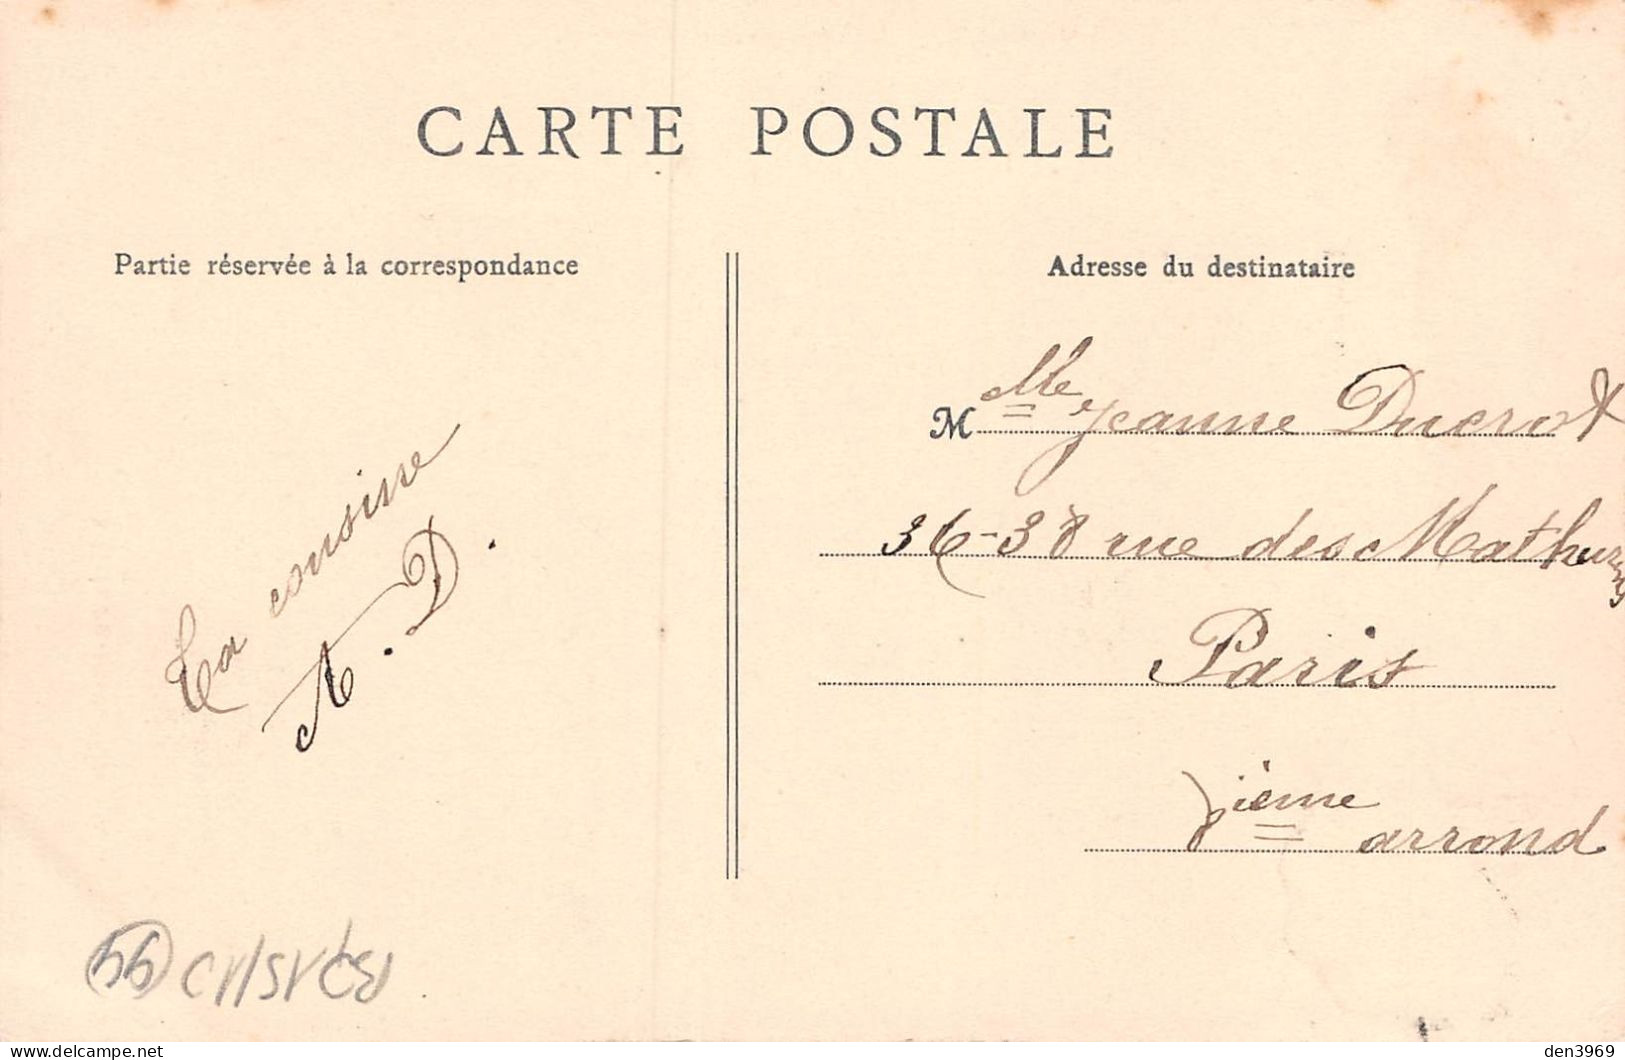 CARTE POSTALE
Partie réservée à la correspondance
Ta cousine
A. D.
Adresse du destinataire
M lle Jeanne Ducrot
36-38 rue des Mathurins
Paris
8ième arrond.
den3969